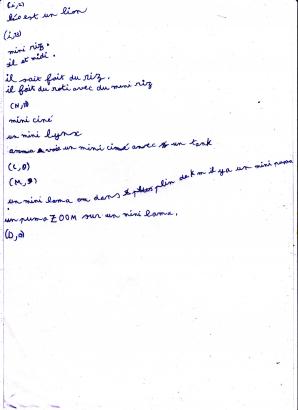 (i,l)
léo est un lion
(i,r)
mini riz.
il et midi.
il sait fait du riz.
il fait du roti avec du mini riz
(N,i)
mini ciné
un mini lynx
un mini ciné avec un tank
(L,a)
(M,a)
un mini lama ou dans plin de k m il y a un mini puma
un puma ZOOM sur un mini lama.
(D,a)